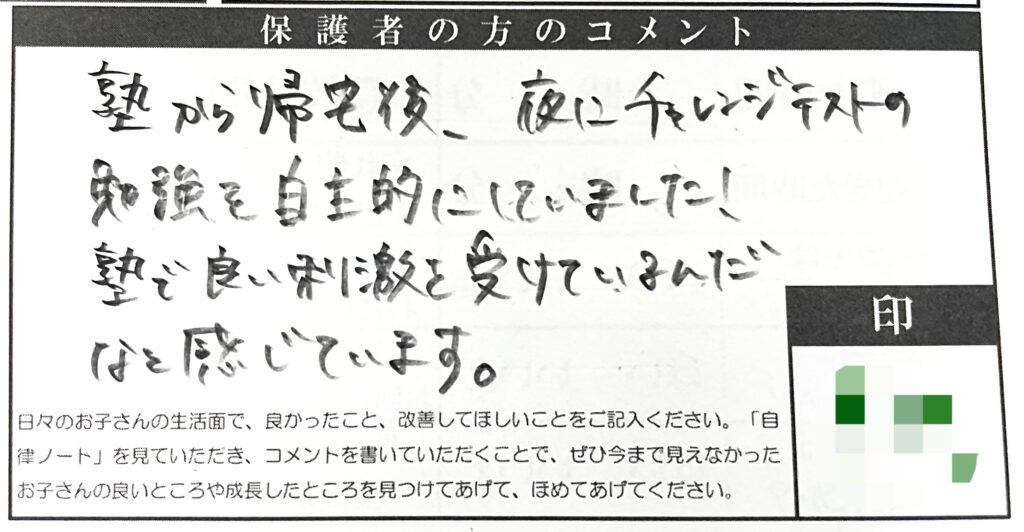 保護者の方のコメント
塾から帰宅後、夜にチャレンジテストの
勉強を自主的にしていました!
塾で良い刺激を受けているんだ
なと感じています。
印
日々のお子さんの生活面で、良かったこと、改善してほしいことをご記入ください。「自
律ノート」を見ていただき、コメントを書いていただくことで、ぜひ今まで見えなかった
お子さんの良いところや成長したところを見つけてあげて、ほめてあげてください。